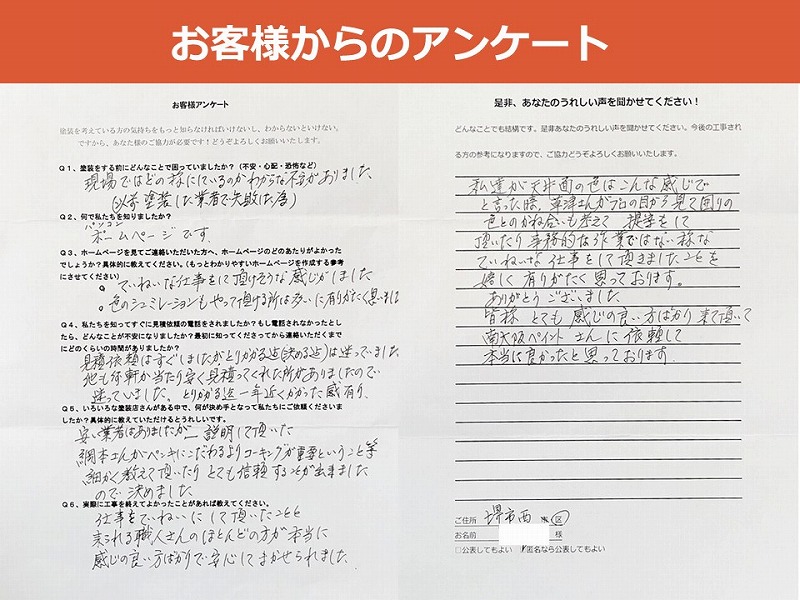 お客様からのアンケート
お客様アンケート
塗装を考えている方の気持ちをもっと知らなければいけないし、わからないといけない。
ですから、あなた様のご協力が必要です！どうぞよろしくお願いいたします。
Q1、塗装をする前にどんなことで困っていましたか？（不安・心配・恐怖など）
現場ではどの様にしているのかわからな不安がありました
（以前塗装した業者で失敗した為）
Q2、何で私たちを知りましたか？
パソコン
ホームページです
Q3、ホームページを見てご連絡いただいた方へ、ホームページのどのあたりがよかった
でしょうか？具体的に教えてください。（もっとわかりやすいホームページを作成する参考
にさせてください）
ていねいな仕事をして頂けそうな感じがしました
色のシュミレーションもやって頂ける所は
に有りがたく思いました
Q4、私たちを知ってすぐに見積依頼の電話をされましたか？もし電話されなかったとし
たら、どんなことが不安でしたか？最初に知ってくださってから連絡いただくまで
にどのくらいの時間がありましたか？
見積依頼はすぐしましたがとりかかる迄(決める迄)は迷っていました
他も何軒か当たり安く見積ってくれた所がありましたので
迷っていました。とりかかる迄一年近くかかった感有り、
Q5、いろいろな塗装店さんがある中で、何が決め手となって私たちにご依頼くださいま
したか？具体的に教えていただけるとうれしいです。
安い業者はありましたが 説明して頂いた
網本さんがペンキにこだわるよりコーキングが重要ということ等
細かく教えて頂いたり とても信頼することが出来ました
ので決めました
Q6、実際に工事を終えてよかったことがあれば教えてください。
仕事をていねいにして頂いたことと
来られる職人さんのほとんどの方が本当に
感じの良い方ばかりで安心してまかせられました
是非、あなたのうれしい声を聞かせてください！
どんなことでも結構です。是非あなたのうれしい声を聞かせてください。今後の工事され
る方の参考になりますので、ご協力どうぞよろしくお願いいたします。
私達が天井面の色はこんな感じで
と言った時、草津さんがプロの目から見て回りの
色とのかね合いも考えて 提案をして
頂いたり事務的な作業ではない様な
ていねいな仕事をして頂きましたことを
嬉しく有りがたく思っております。
ありがとうございました
皆様 とても感じの良い方ばかり来て頂いて
南大阪ペイントさんに依頼して
本当に良かったと思っております.
ご住所 堺市西 市 区
お名前 様
□公表してもよい ☑匿名なら公表してもよい